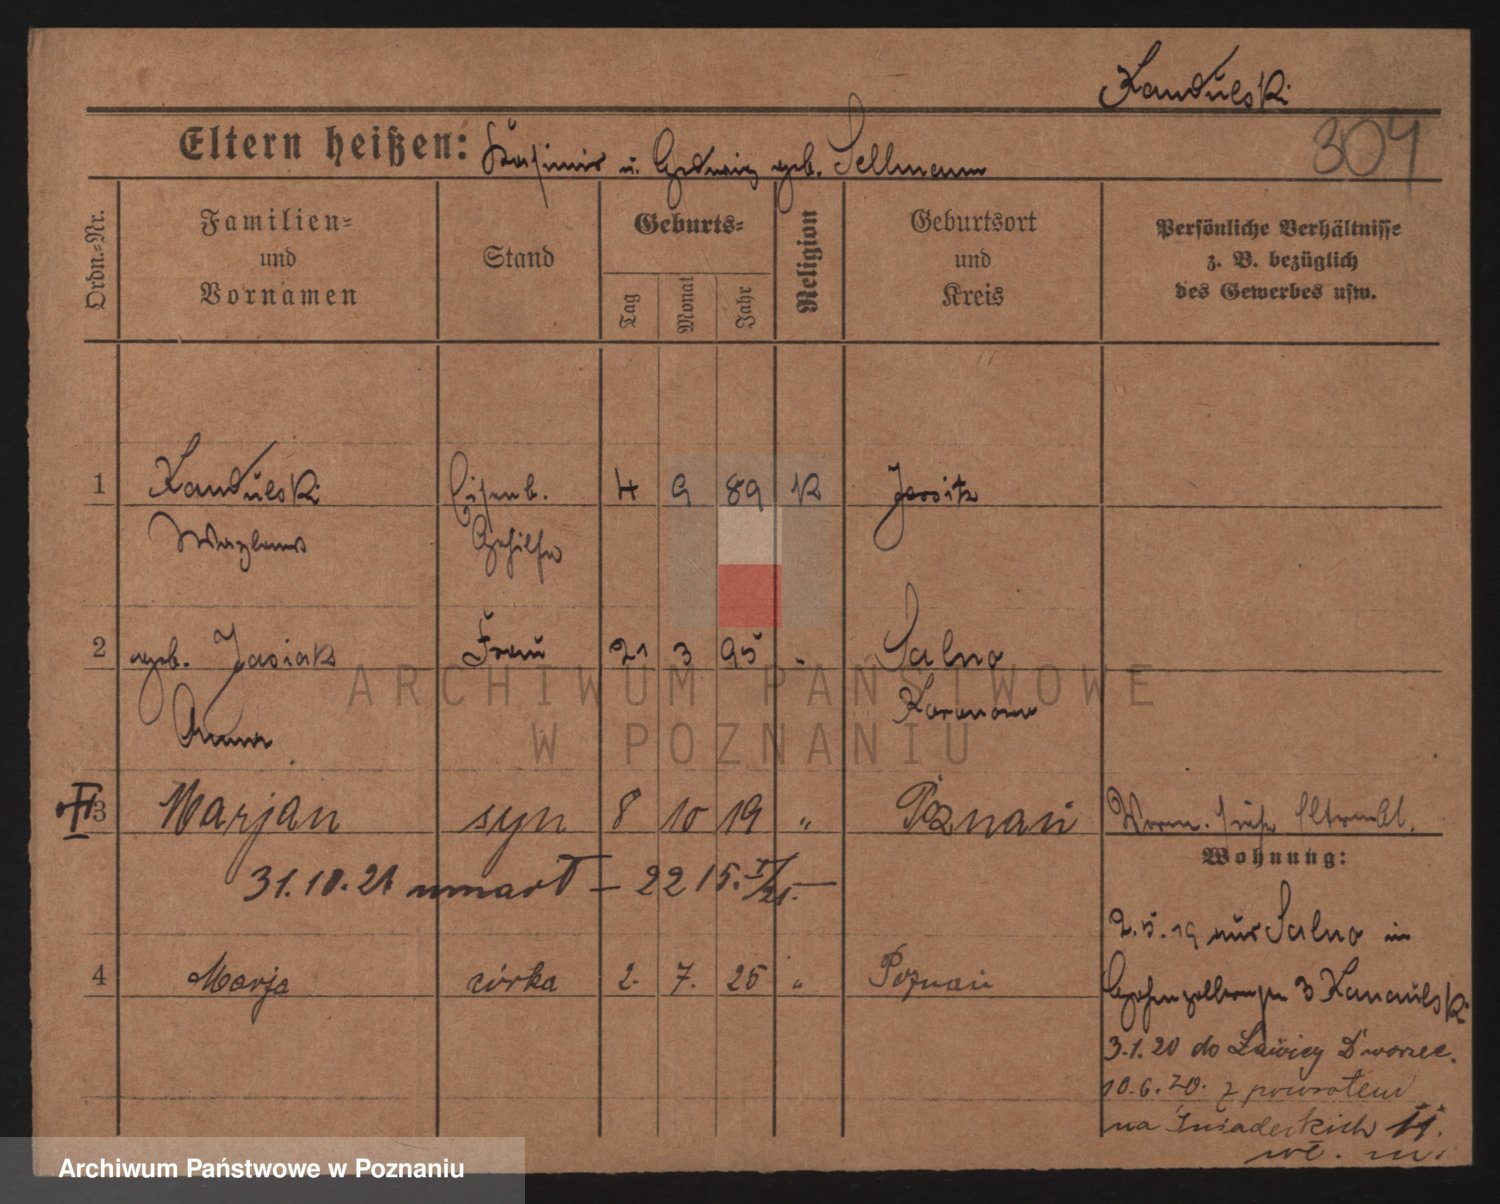 Kandulski
304
Eltern heißen: Kasimir u. Hedwig geb. Sellmann
Ordn.-Nr.
Familien- und Vornamen
Stand
Geburts-
Tag
Monat
Jahr
Religion
Geburtsort und Kreis
Persönliche Verhältnisse z. B. bezüglich des Gewerbes usw.
1 Kandulski Eisenb. 4 9 89 K Jersitz
Wazlaus Gehilfe
2 geb. Jasiak Frau 21 3 95 " Salno
Anna Koronowo
3 Marjan syn 8 10 19 " Poznań Verm. siehe
31.10.21 umarł – 22 15. –
Wohnung:
2.5.19 aus Salno in
4 Marja córka 2. 7. 25 " Poznań
Hohenzollernstr 3 Kandulski
3.1.20 do Ławicy Dworzec.
10.6.20. z powrotem
na Śniadeckich 11.
wł. m.
ARCHIWUM PAŃSTWOWE
W POZNANIU
Archiwum Państwowe w Poznaniu